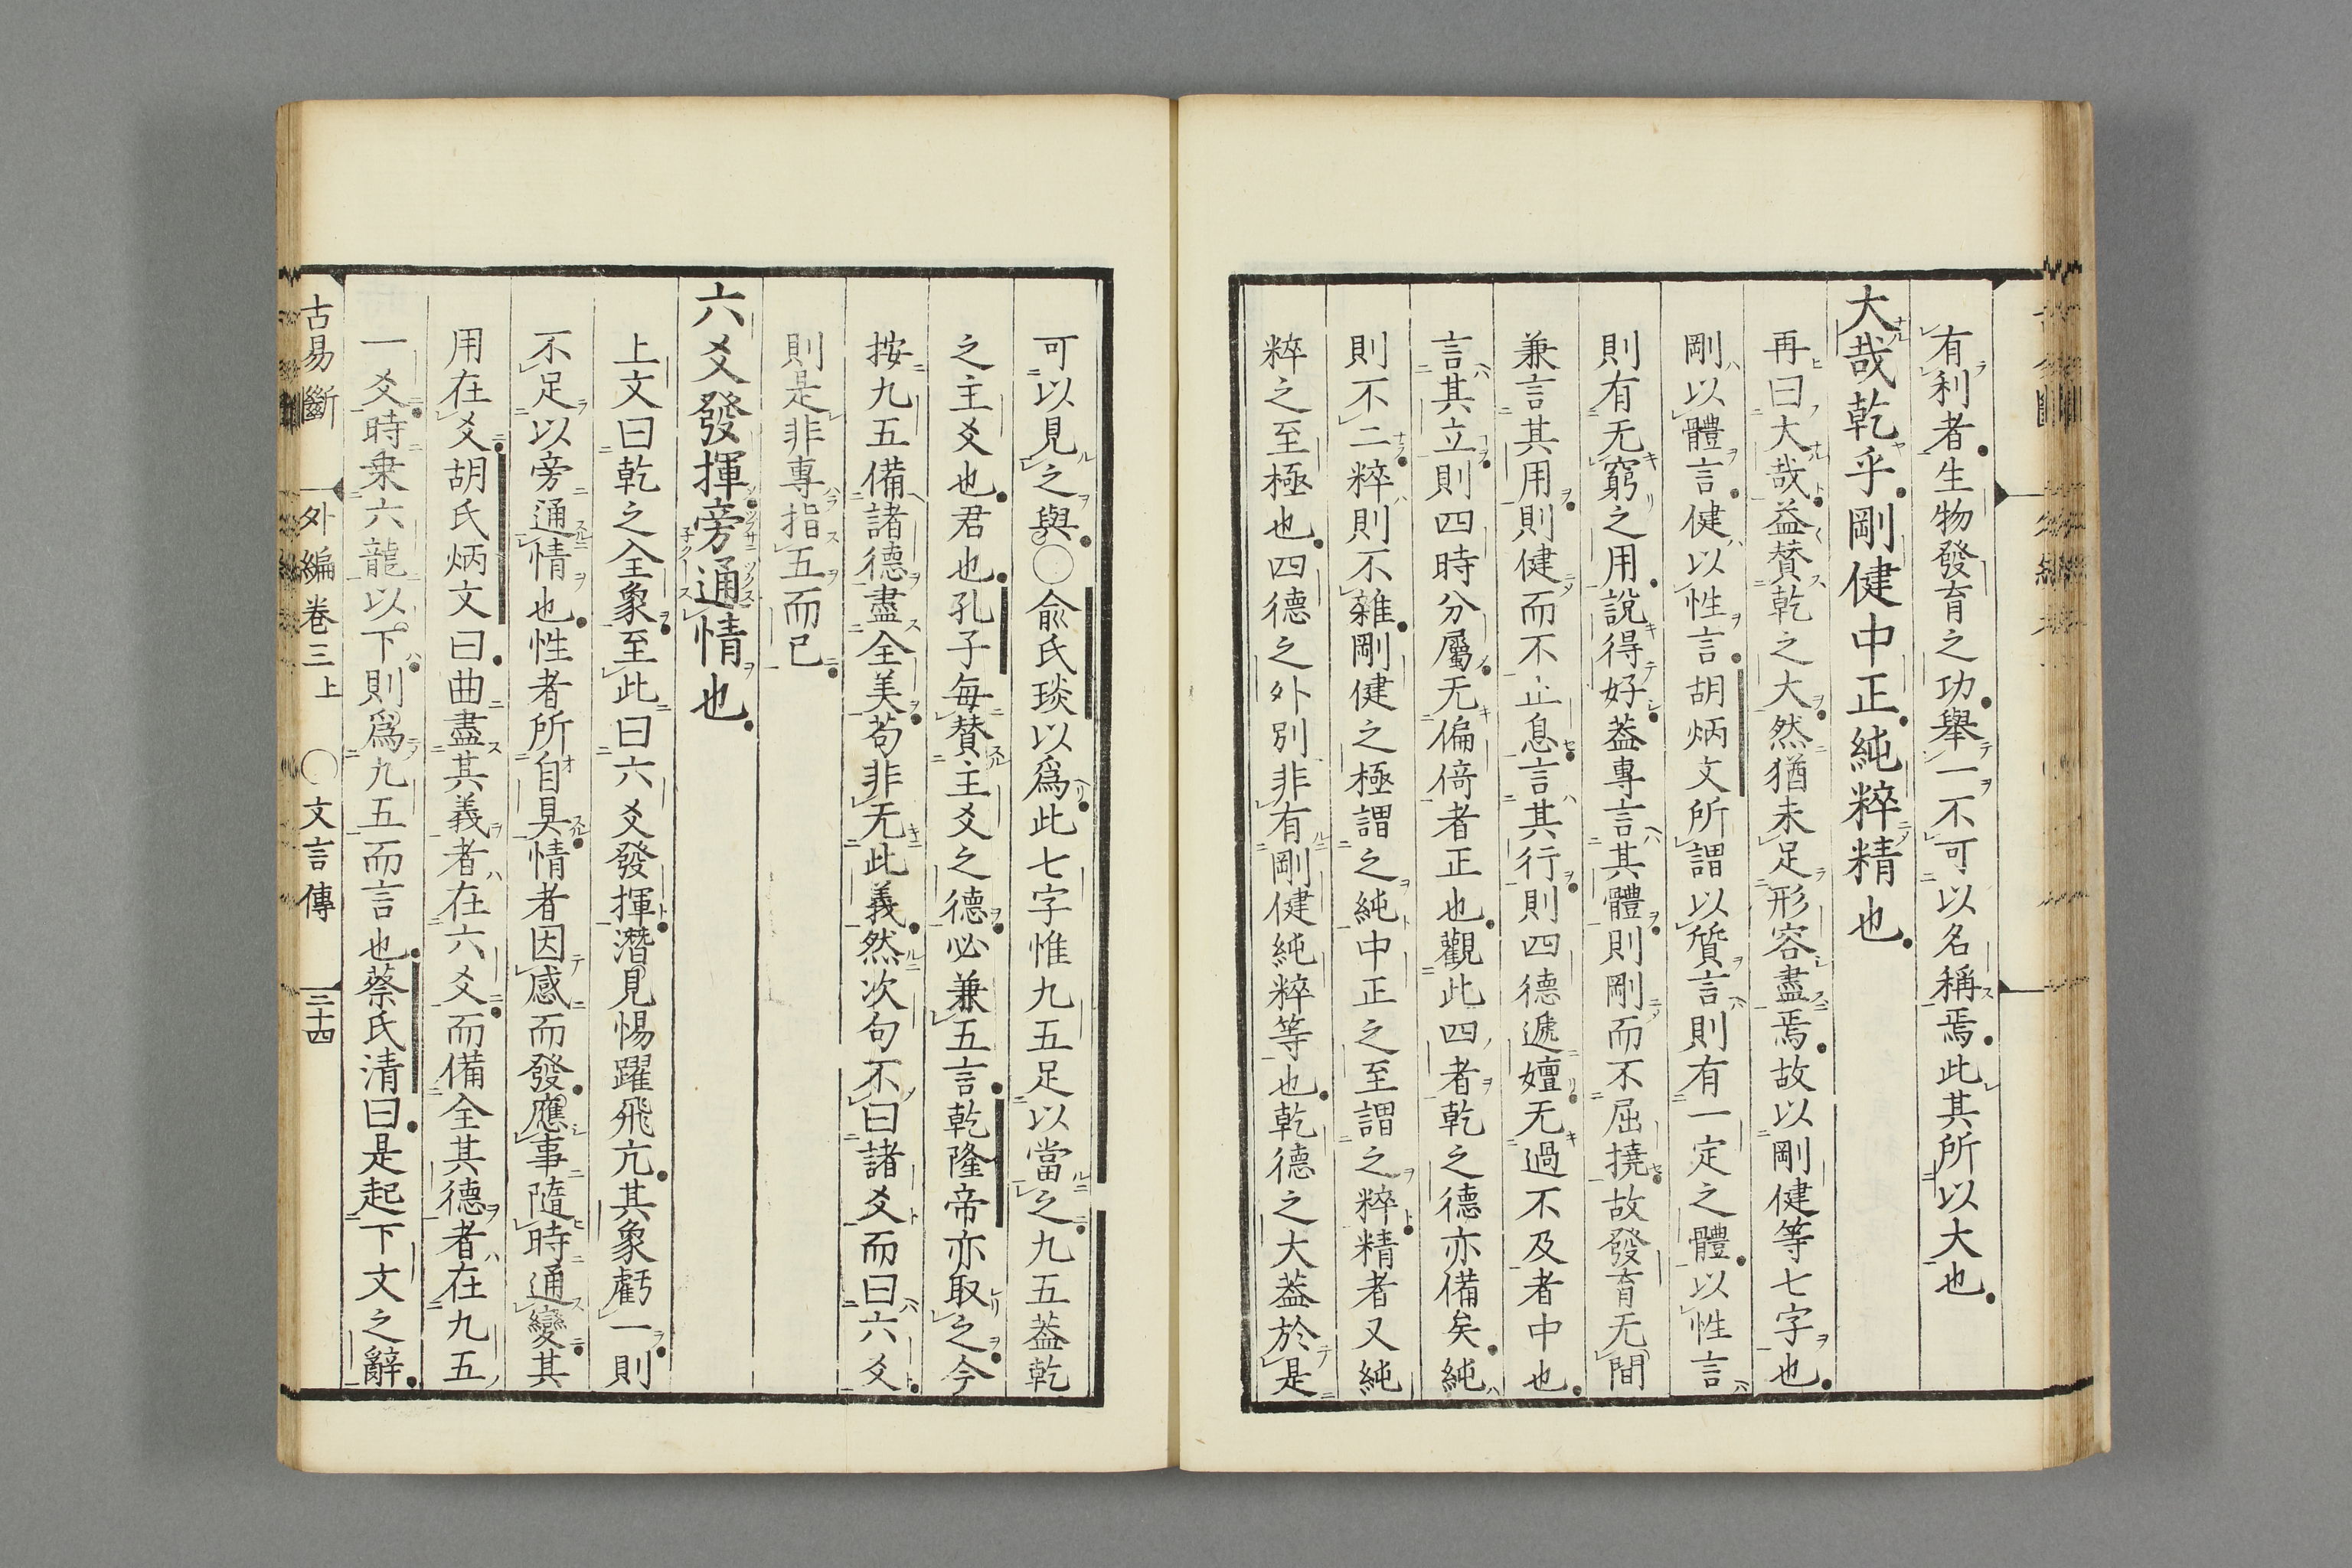 有利者生物發育之功舉一不可以名稱焉此其所以大也
大哉乾乎剛健中正純粹精也
再曰大哉益賛乾之大然猶未足形容盡焉故以剛健等七字也
剛以體言健以性言胡炳文所謂以質言則有一定之體以性言
則有无窮之用說得好葢專言其體則剛而不屈撓故發育无間
兼言其用則健而不止息言其行則四德遞嬗无過不及者中也
言其立則四時分屬无偏倚者正也觀此四者乾之德亦備矣純
則不二粹則不雜剛健之極謂之純中正之至謂之粹精者又純
粹之至極也四德之外別非有剛健純粹等也乾德之大葢於是
可以見之與〇俞氏琰以爲此七字惟九五足以當之九五葢乾
之主爻也君也孔子每賛主爻之德必兼五言乾隆帝亦取之今
按九五備諸德盡全美苟非无此義然次句不曰諸爻而曰六爻
則是非專指五而已
六爻發揮旁通情也
上文曰乾之全象至此曰六爻發揮潛見惕躍飛亢其象虧一則
不足以旁通情也性者所自具情者因感而發應事隨時通變其
用在爻胡氏炳文曰曲盡其義者在六爻而備全其德者在九五
一爻時乘六龍以下則爲九五而言也蔡氏清曰是起下文之辭
古易斷 外編卷三上 〇文言傳 三十四